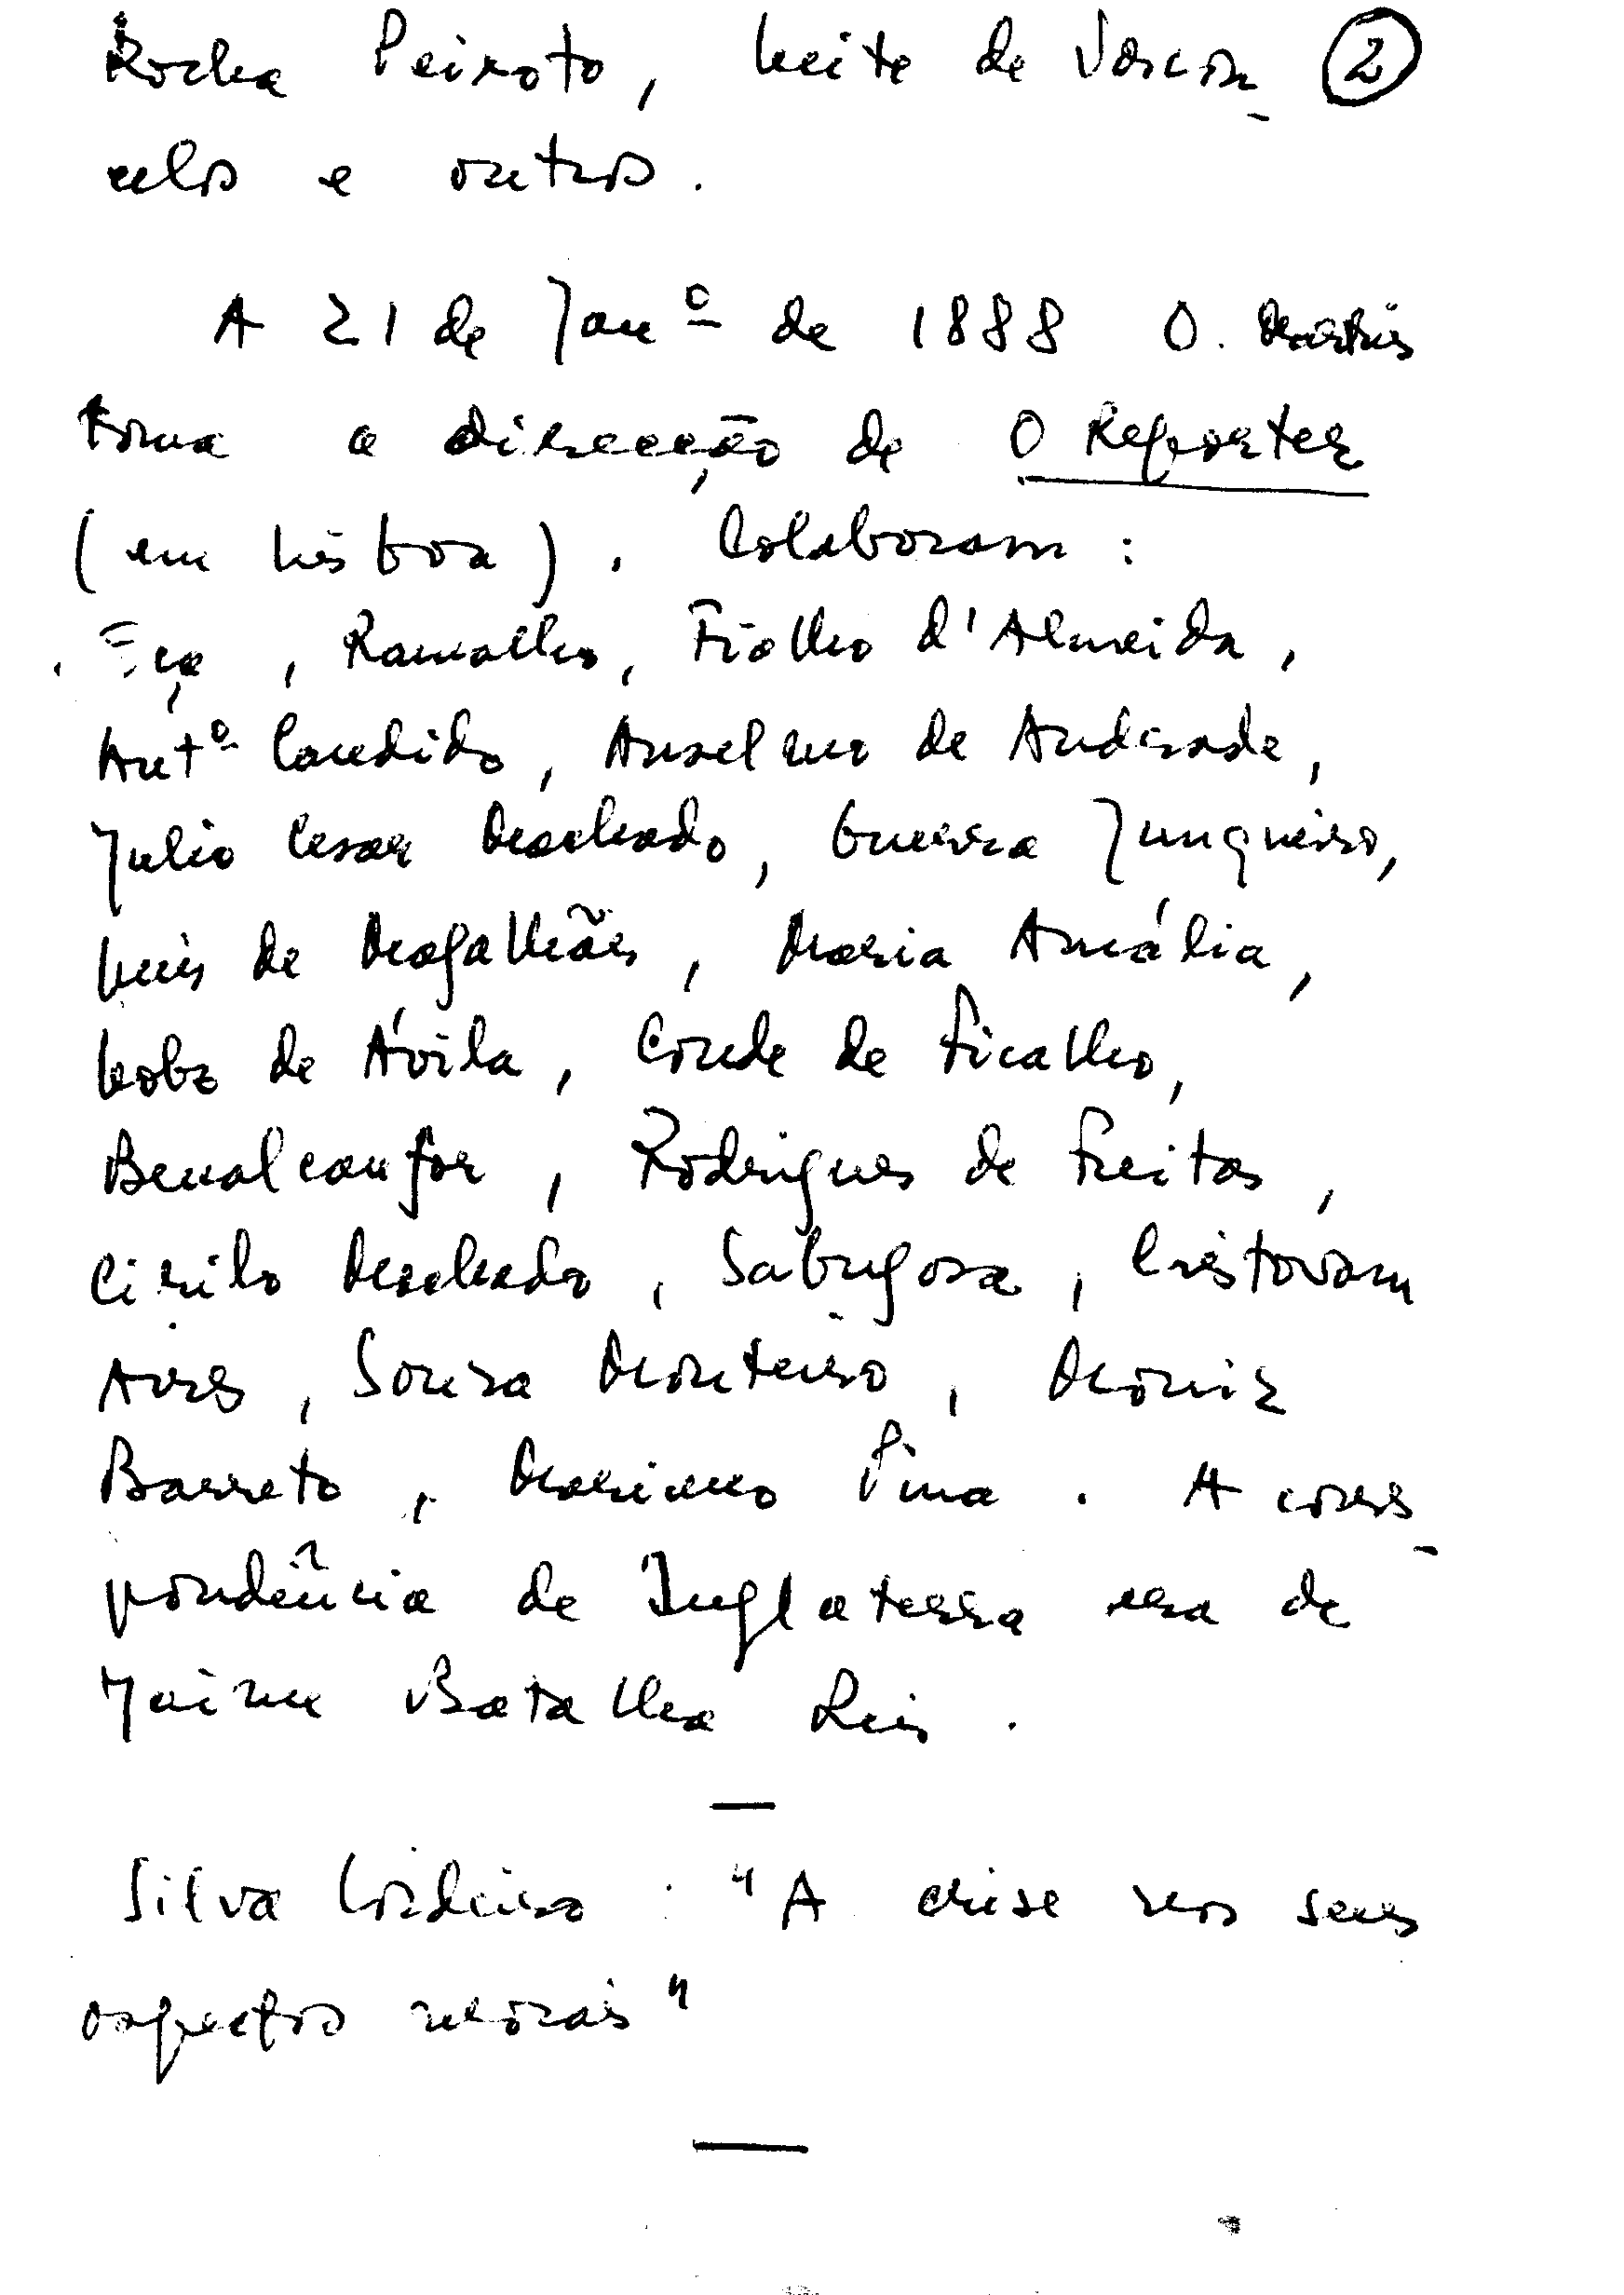 Rocha Peixoto, Leite de Vascon- ②
celos e outros.
A 21 de Janº de 1888 O. Martins
toma a direcção de O Reporter
(em Lisboa). Colaboram:
Eça, Ramalho, Fialho d'Almeida,
Antº Candido, Anselmo de Andrade,
Julio Cesar Machado, Guerra Junqueiro,
Luis de Magalhães, Maria Amália,
Lobo de Ávila, Conde de Ficalho,
Benalcanfor, Rodrigues de Freitas,
Cirilo Machado, Sabugosa, Cristovam
Aires, Sousa Monteiro, Moniz
Barreto, Mariano Pina. A corres-
pondência de Inglaterra era de
Jaime Batalha Reis.
Silva Cordeiro: "A crise nos seus
aspectos morais"